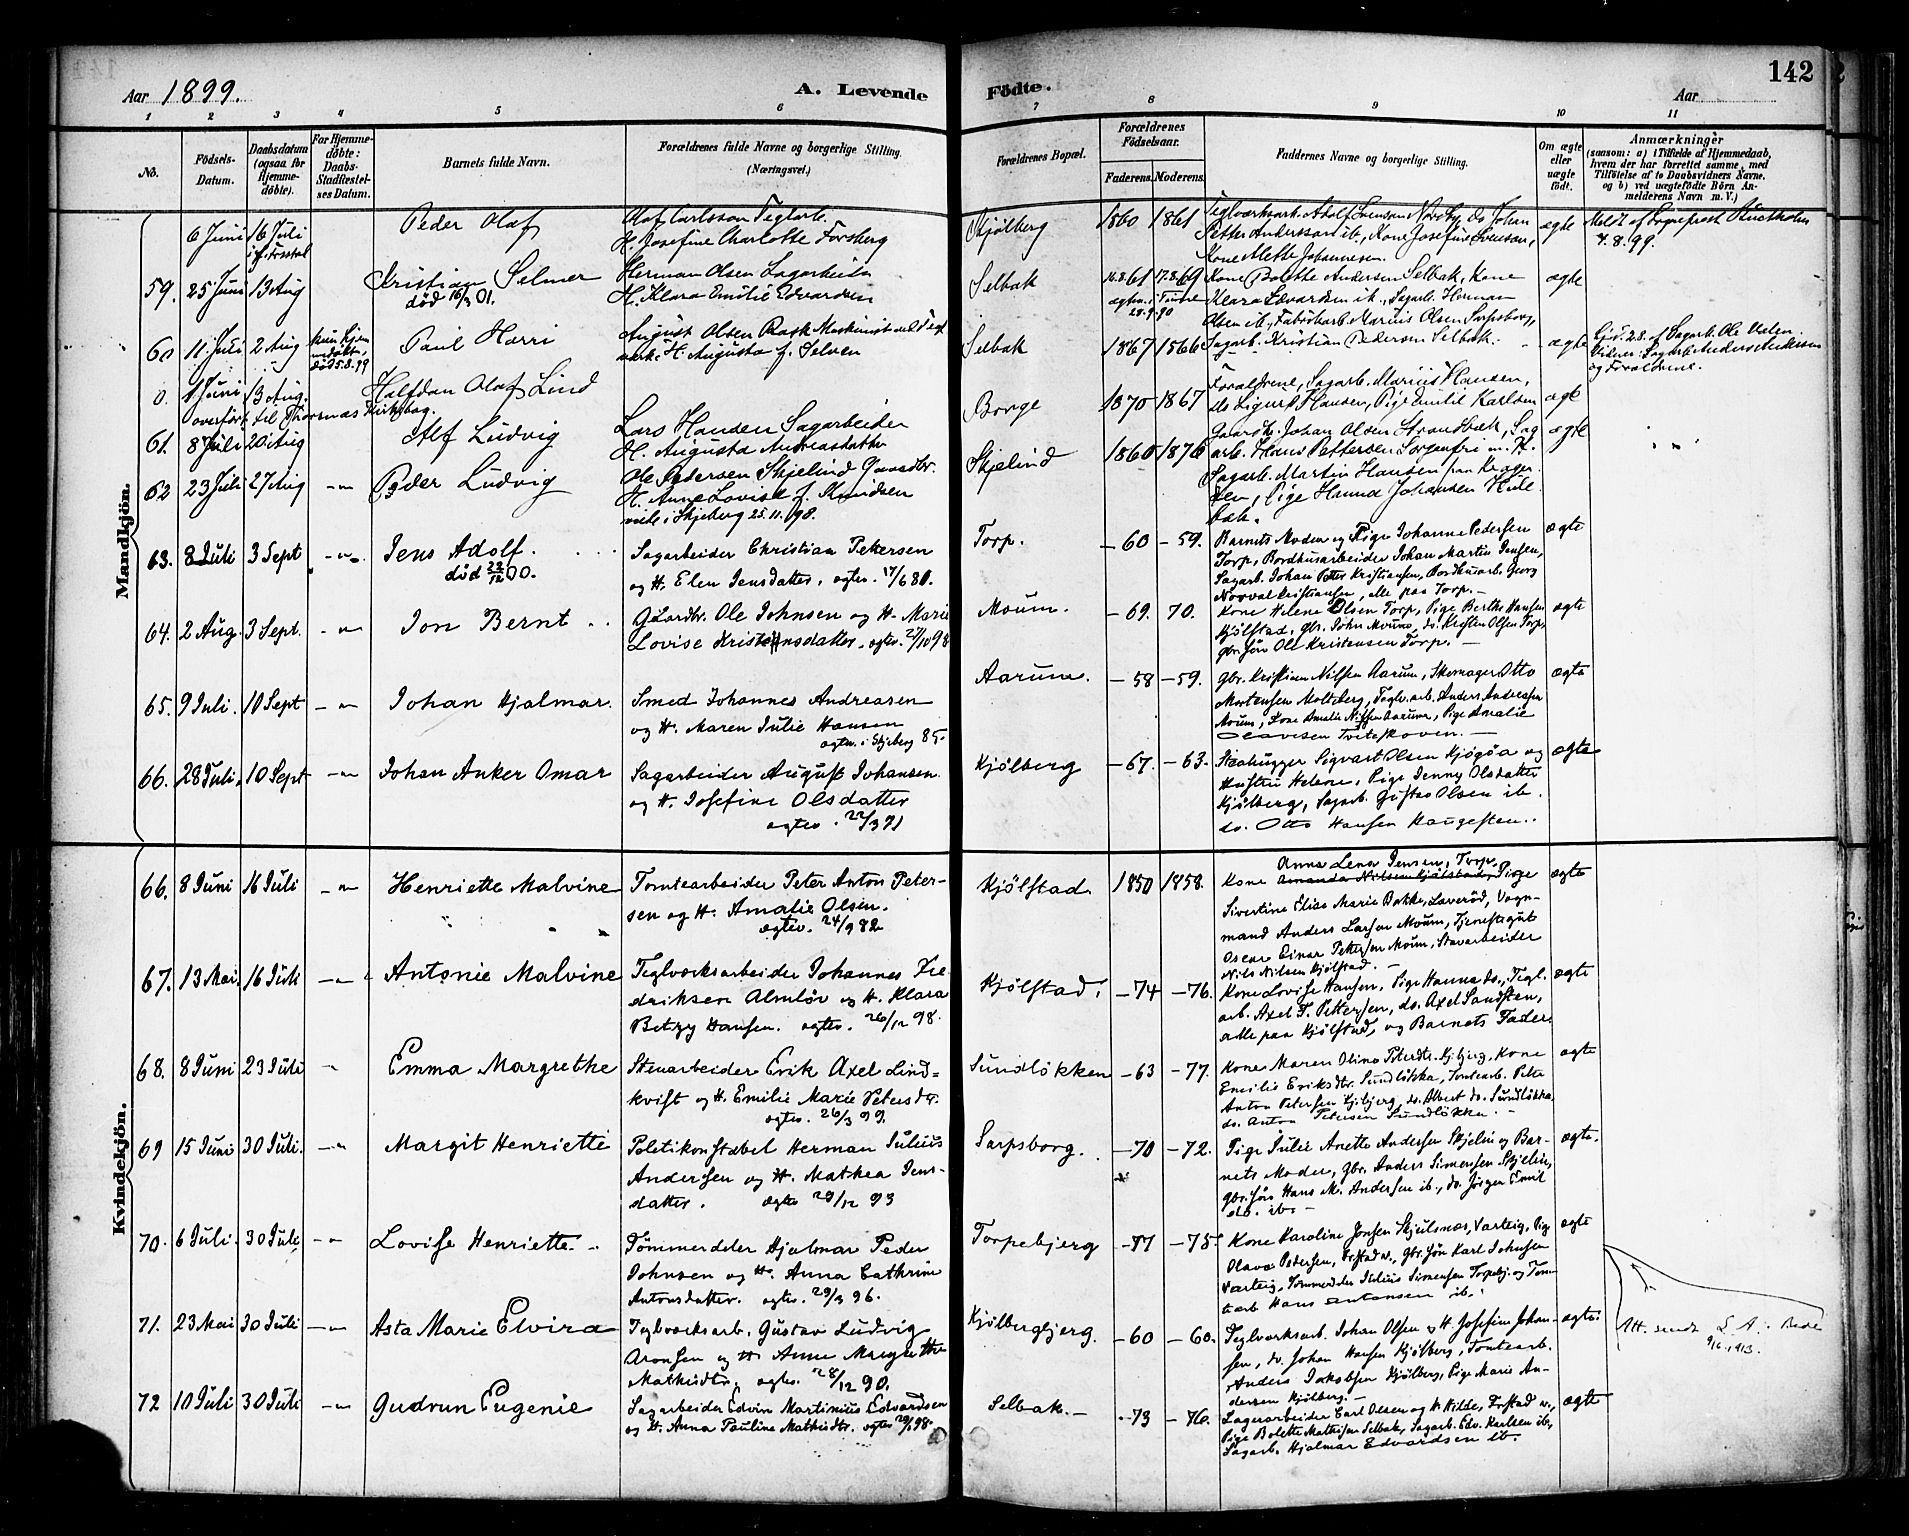 Aar 1899.
A. Levende
Födte.
Aar
142
1 2 3 4 5 6 7 8 9 10 11
No.
Födsels-Datum.
Daabsdatum (ogsaa for Hjemme-döbte).
For Hjemme-döbte: Daabs-Stadfæstel-ses Datum.
Barnets fulde Navn.
Forældrenes fulde Navne og borgerlige Stilling. (Næringsvei.)
Forældrenes Bopæl.
Forældrenes Födselsaar.
Faderens. Moderens.
Faddernes Navne og borgerlige Stilling.
Om ægte eller uægte födt.
Anmærkninger
(saasom: a) i Tilfælde af Hjemmedaab,
hvem der har forrettet samme, med
Tilföielse af to Daabsvidners Navne,
og b) ved uægtefödte Börn An-
melderens Navn m. V.)
Mandkjön.
6 Juni 16 Juli Peder Olaf Olaf Carlsson Teglarb. Kjölberg 1860 1861 Teglværksarb. Adolf Svenson Nöreby, do Johan ægte
H. Josefine Charlotte Forsberg
Petter Andersson ib., Kone Josefine Svenson,
Kone Alette Johannesen.
7.8.99.
59. 25 Juni 13 Aug Kristian Selmer Herman Olsen Sagarbeider Selbak 61 17.8.69 Kone Bolette Andersen Selbak, Kone ægte
död 16/3 01. H. Klara Emilie Edvardsen
Klara Edvardsen ib., Sagarb. Herman
Olsen ib., Fabrikarb. Marius Olsen Sarpsborg,
60 11 Juli 2 Aug Paul Harri August Olsen Rask Maskinist ved Tegl Selbak 1867 1866 Sagarb. Kristian Pedersen Selbak. ægte
död 5.8.99 H. Augusta f. Selven
Gjort 2.8. af Sagarb. Ole Valen.
og Forældrene.
0. 1 Juni 13 Aug. Halfdan Olaf Lind Borge 1870 1867 Forældrene, Sagarb. Marius Hansen, ægte
overfört til Thorsnæs Kirkebog.
do Sigurd Hansen, Pige Emilie Karlsen
61. 8 Juli 20 Aug Alf Ludvig Lars Hansen Sagarbeider Skjelind 1860 1876 Gaardbr. Johan Olsen Strandbæk, Sag ægte
H. Augusta Andreasdatter
arb. Hans Pettersen Sorgenfri m. H.
62 23 Juli 27 Aug Peder Ludvig Ole Pedersen Skjelind Gaardbr. Sagarb. Martin Hansen paa
H. Anne Lovise f. Knudsen
Pige Hanna Johansen
viede i Skjeberg 25.11.98.
63. 8 Juli 3 Sept Jens Adolf. Sagarbeider Christian Petersen Torp. 60 59. Barnets Moder og Pige Johanne Pedersen ægte
död 00. og H. Elen Jensdatter. ægtev. 17/6 80.
Torp, Bordhusarbeider Johan Martin Jensen,
Sagarb. Johan Petter Kristiansen, Bordhusarb. Georg
Norval Kristiansen, alle paa Torp.
64. 2 Aug. 3 Sept. Jon Bernt Gaardbr. Ole Johnsen og H. Marie Moum. 69. 70. Kone Helene Olsen Torp, Pige Berthe Hansen ægte
Lovise Kristensdatter. ægtev. 98
Kjölstad, gbr. John Moum, do. Kristen Olsen Torp,
gbr. sön Ole Kristensen Torp.
65. 9 Juli. 10 Sept Johan Hjalmar. Smed Johannes Andreasen Aarum. 58 59. gbr. Kristian Nilsen Aarum, Skomager Otto ægte
og H. Maren Julie Hansen
ægtev. i Skjeberg 85.
Mortensen Molteberg, Teglv. arb. Anders Andersen
Moum, Kone Amalie Nilsen Aarum, Pige Amalie
66. 28 Juli. 10 Sept Johan Anker Omar Sagarbeider August Johansen Kjölberg 67. 63. Stenhugger Sigvart Olsen Kjøgöa og ægte
og H. Josefine Olsdatter
ægtev. 22/3 91
Hustru Helene, Pige Jenny Olsdatter
Kjölberg, Sagarb. Gustav Olsen ib.
do. Otto Hansen Haugesten.
Kvindekjön.
66. 8 Juni 16 Juli Henriette Malvine Tomtearbeider Peter Anton Peter- Kjölstad. 1850 1858. Kone Anna Lena Jensen, Torp, Pige ægte
sen og H. Amalie Olsen.
ægtev. 24/9 82
Sivertine Elise Marie Bakke, Laveröd, Vogn-
mand Anders Larsen Moum, Tjenestegut
Oscar Einar Pettersen Moum, Stavarbeider
Nils Nilsen Kjölstad.
67. 13 Mai. 16 Juli Antonie Malvine Teglværksarbeider Johannes Fre- Kjölstad. 74 76. Kone Lovise Hansen, Pige Hanna do., Tegl. ægte
driksen Almlöv og H. Klara
Betzy Hansen. ægtev. 26/12 98.
arb. Axel F. Pettersen, do. Axel Sandsten,
alle paa Kjölstad, og Barnets Fader.
68. 8 Juni 23 Juli Emma Margrethe Stenarbeider Erik Axel Lind- Sundlökken 63 77. Kone Maren Olina Petersdtr. Kjbjerg, Kone ægte
kvist og H. Emilie Marie Petersdtr.
ægtev. 26/3 99.
Emilie Eriksdtr. Sundlökka, Tomtearb. Peter
Anton Petersen Kjbjerg, do. Albert do. Sundlökka,
do. Anton Petersen Sundlökka.
69 15 Juni 30 Juli. Margit Henriette Politikonstabel Herman Julius Sarpsborg. 70 72. Pige Julie Anette Andersen Skjelin og Bar- ægte.
Andersen og H. Mathea Jens-
datter. ægtev. 29/12 93
nets Moder, gbr. Anders Simensen Skjelin,
gbr. sön Hans M. Andersen ib., do. Jörgen Emil
do. ib.
70. 6 Juli. 30 Juli Lovise Henriette. Tömmerdeler Hjalmar Peder Torpebjerg 71 75. Kone Karoline Jonsen Skjulsnæs, Varteig, Pige ægte
Johnsen og H. Anna Cathrine
Antonsdatter. ægtev. 29/3 96.
Olava Pedersen, gbr. sön Karl Johnsen
Varteig, Tömmerdeler Julius Simensen Torpebj. og Tom-
tearb Hans Antonsen ib.
71. 23 Mai 30 Juli Asta Marie Elvira Teglværksarb. Gustav Ludvig Kjölbergbjerg. 60 60. Teglværksarb. Johan Olsen og H. Josefine Johan- ægte.
Aronsen og H. Anne Margrethe
Mathisdtr. ægtev. 28/12 90.
sen, do. Johan Hansen Kjölberg, Tomtearb.
Anders Jakobsen Kjölberg, Pige Marie An-
dersen Kjölberg.
Att. sendt
9/6 1913.
72 10 Juli 30 Juli Gudrun Eugenie Sagarbeider Edvin Martinius Edvardsen Selbak. 73 76. Lagerarbeider Carl Olsen og H. Hilde, Frstad v., ægte
og H. Anna Pauline Mathisdtr. ægtev. 98.
Pige Bolette Mathisen Selbak, Sagarb. Edv. Karlsen ib.,
Sagarb. Hjalmar Edvardsen ib.